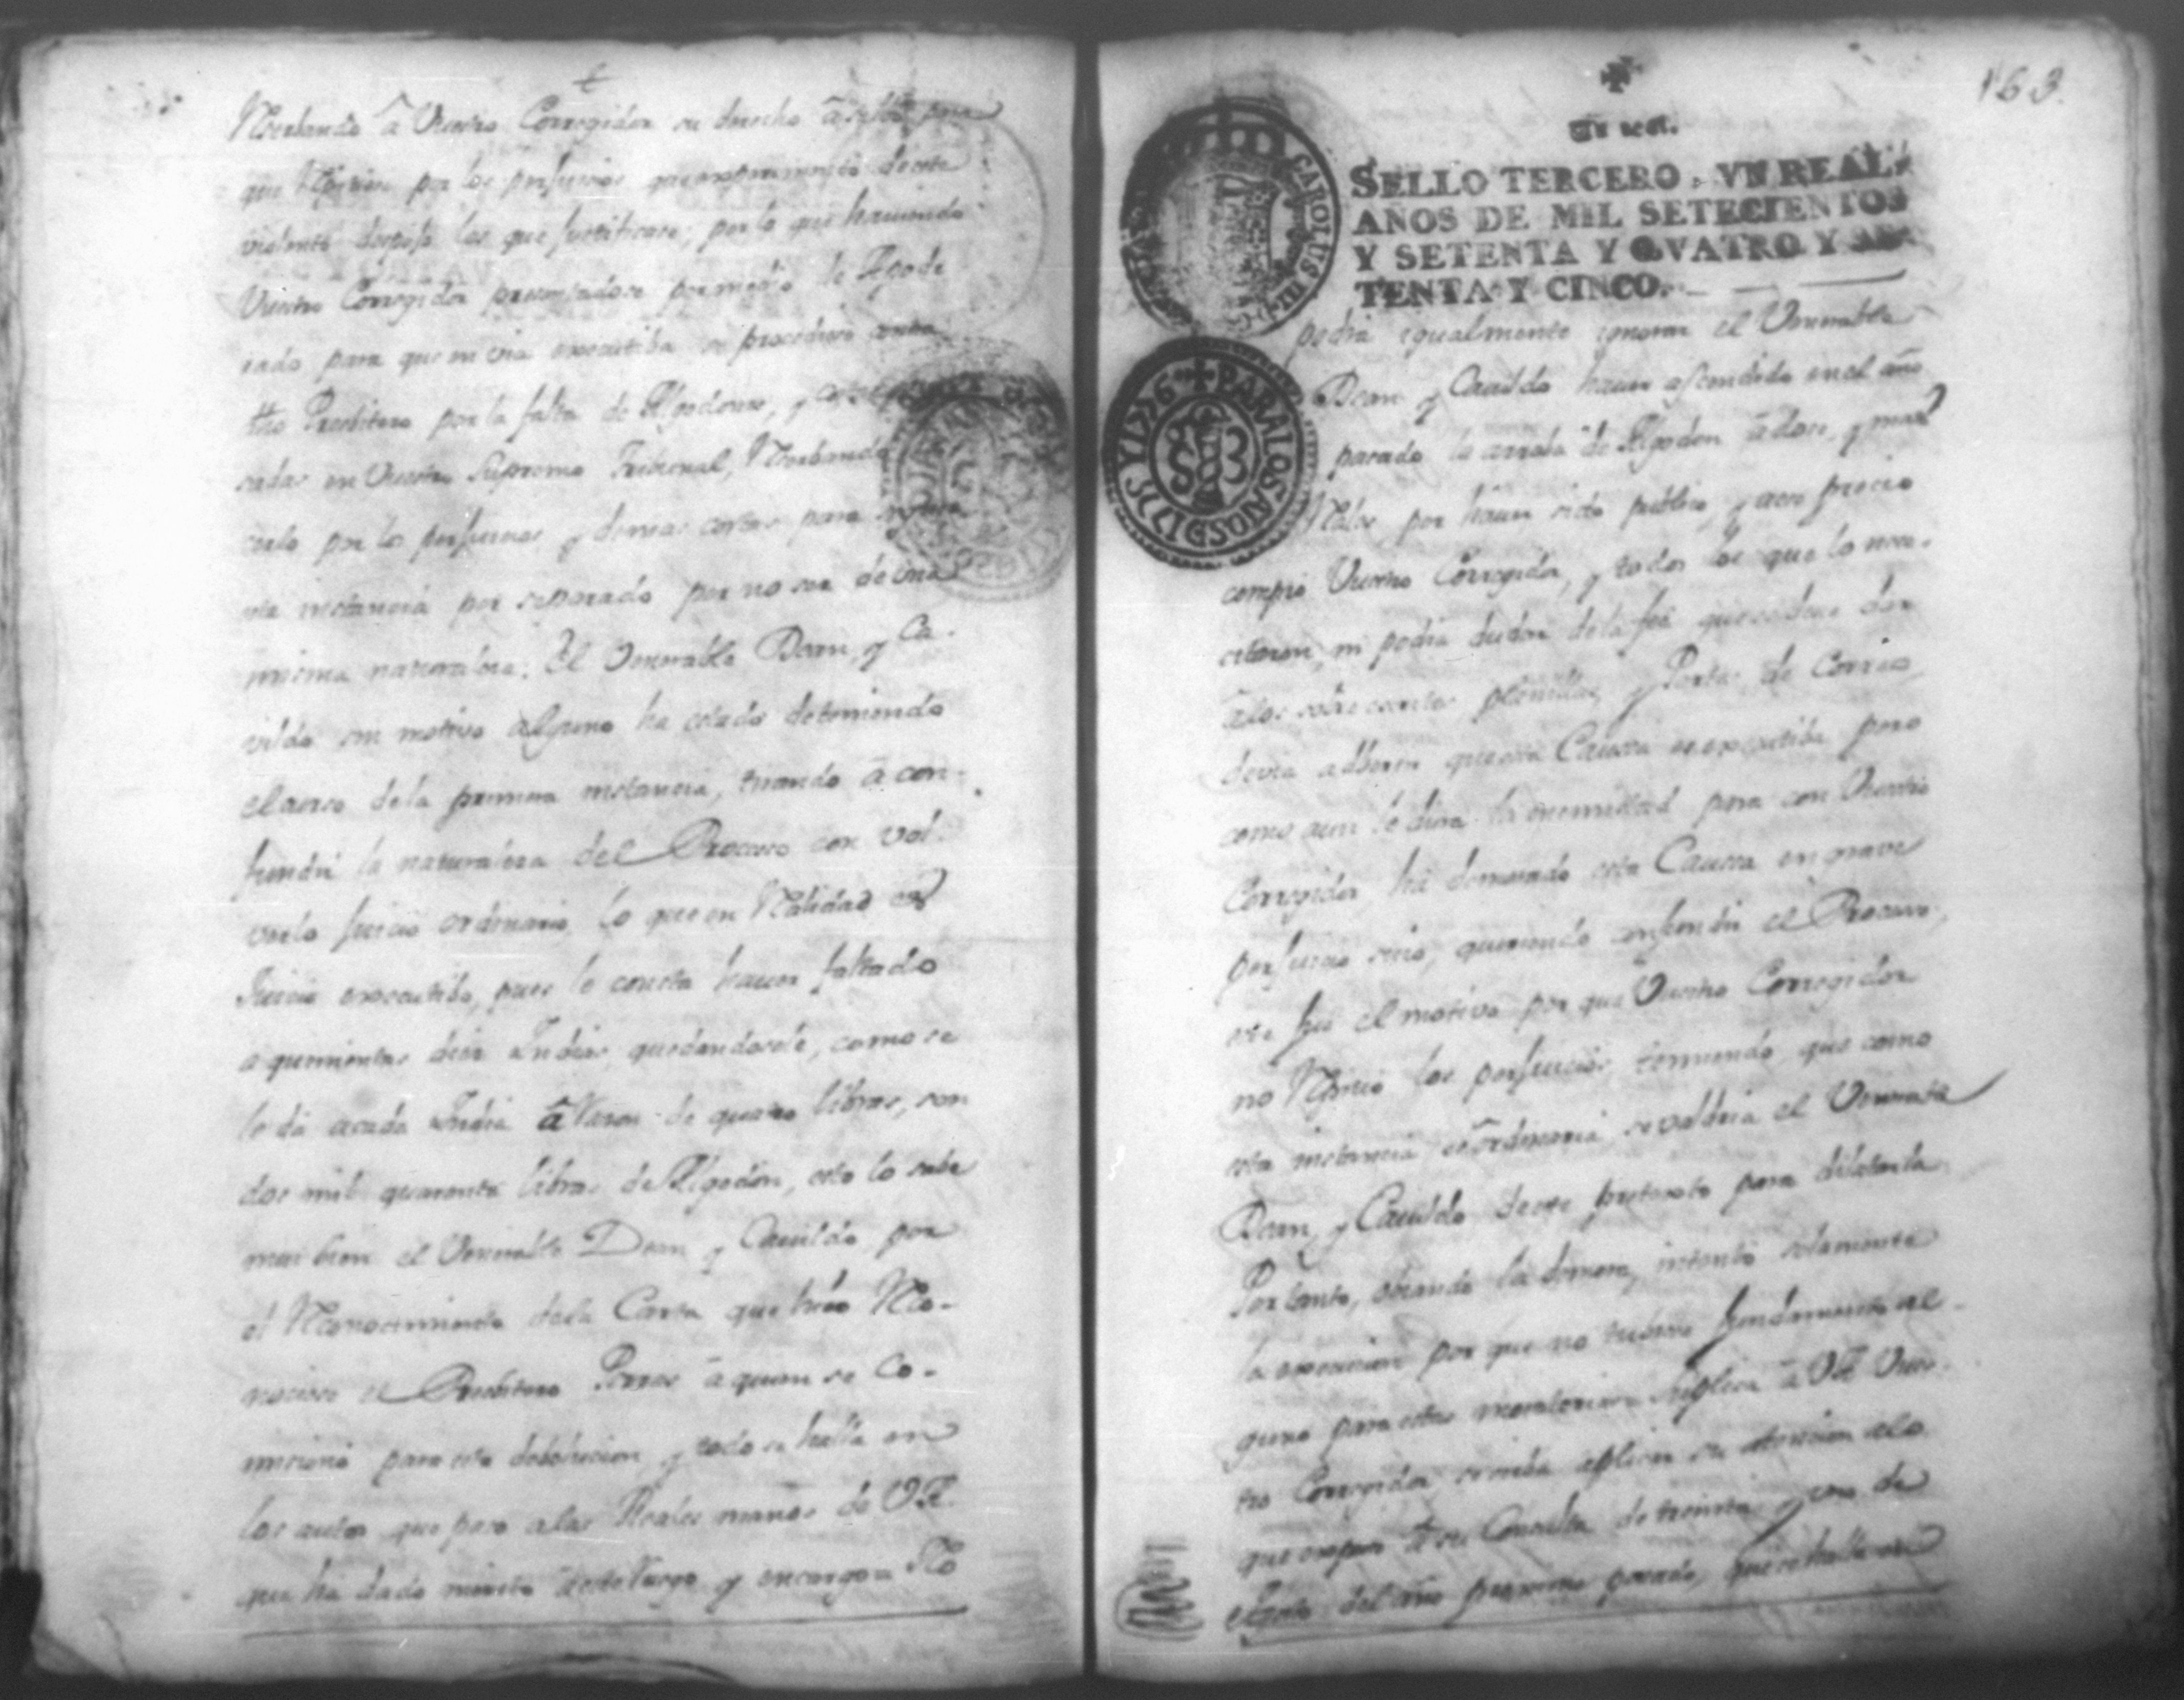 Reservando â Vuestro Corregidor su derecho â salbo para
que repitiese por los perjuicios que experimentó de este
violento despojo los que justificare; por lo que haviendo
Vuestro Corregidor presentadose por medio de Apode
rado para que en via executiba se procediese contra
dho Presbitero por la falta de Algodones, y costas
sadas en Vuestro Supremo Tribunal, Reserbando
cerlo por los perjuicios, y demas costas para
ota instancia por separado por no ser de una
misma naturaleza: El Venerable Dean, y Ca-
vildo sin motivo alguno ha estado deteniendo
el curso de la primera instancia, tirando â con-
fundir la naturaleza del Proceso con vol-
verlo juicio ordinario, lo que en Realidad es
Juicio executibo, pues le consta haver faltado
a quinientas diez Indias, quedandosele, como se
le dá a cada India â Razon de quatro libras, son
dos mil quarenta libras de Algodon, esto lo sabe
mui bien el Venerable Dean, y Cavildo, por
el Reconocimiento de la Carta que hizo Re-
nociese el Presbitero Porras â quien se Co-
micionó para esta debolucion, y todo se halla en
los autos, que paso a las Reales manos de V.A.
que ha dado merito desde luego, y encargo a No
163.
Un real.
SELLO TERCERO, VN REAL,
AÑOS DE MIL SETECIENTOS
Y SETENTA Y QVATRO Y SE
TENTA Y CINCO.
CAROLUS III
PARA LOS AÑOS D 1776 Y 1777
podia igualmente ignorar el Venerable
Dean y Cavildo haver ascendido en el año
pasado la arroba de Algodon â doce, y mas
Reales por haver sido publico, y a ese precio
compró Vuestro Corregidor, y todos los que lo nece-
citaron, ni podia dudar de la feé que se deve dar
â los sobre escritos plantillas, y Partes de Correo
devia adberir que esta Caussa es executiba, pero
como aun le dura la enemistad para con Vuestro
Corregidor ha demorado esta Caussa en grave
perjuicio suio, queriendo confundir el Proceso,
este fue el motivo por que Vuestro Corregidor
no Repitió los perjuicios temiendo, que como
esta instancia es ordinaria, se valdria el Venerable
Dean, y Cavildo de este pretexto para dilatarla
Por tanto, obiando la demora, intentó solamente
la execucion por que no tubiese fundamento al-
guno para estas moratorias Suplica â V.A. Vues-
tro Corregidor se sirba aplicar su atencion a lo
que expuso â su Consulta de treinta y uno de
Agosto del año proximo pasado, que se halla en